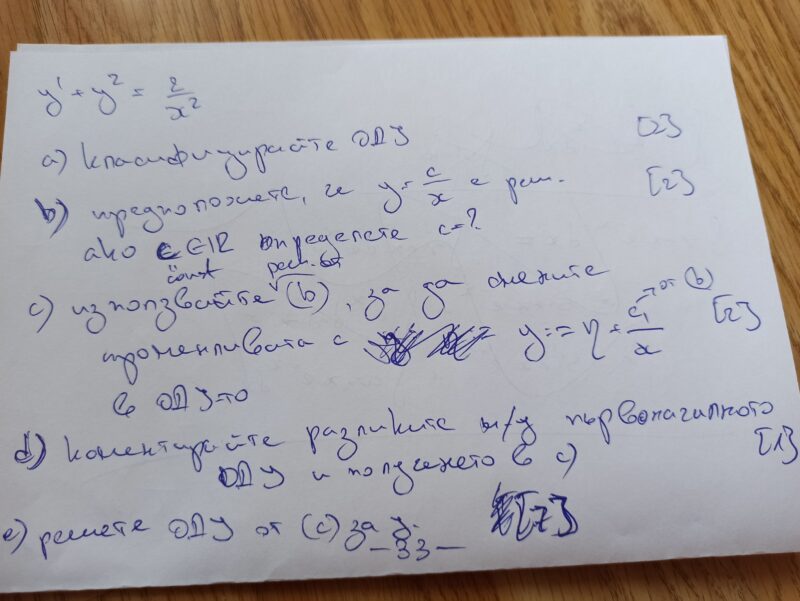 y' + y² = 2/x²
a) класифицирайте ОДУ [2]
b) предположете, че y = c/x е реш. [2]
ако c ∈ ℝ определете c = ?
const реш. от
c) използвайте (b), за да смените
променливата с y := η + c₁/x → от (b) [2]
в ОДУ-то
d) коментирайте разликите м/у първоначалното [1]
ОДУ и полученето в c)
e) решете ОДУ от (c) за y. [7]